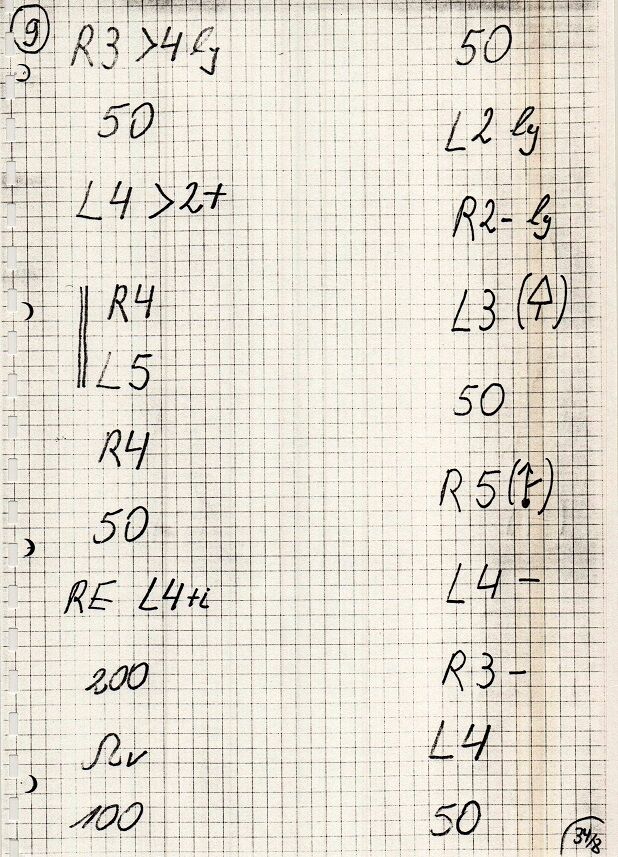 9
R3 >4 ly
50
L4 >2+
R4
L5
R4
50
RE L4+i
200
Ωv
100
50
L2 ly
R2- ly
L3 ( )
50
R5 ( )
L4 -
R3 -
L4
50
34/8